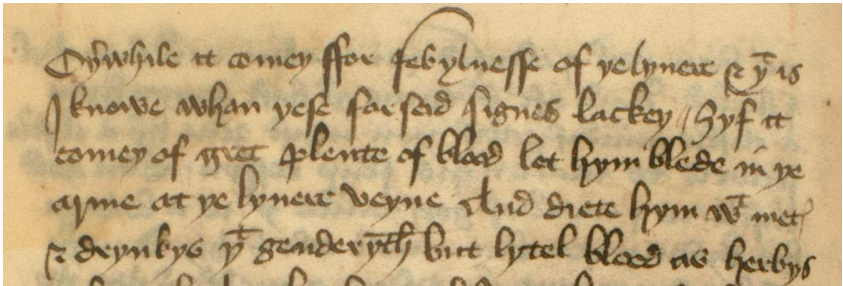 Oyrwhile it comey ffor febylnesse of ye lyuere & yt is
I knowe whan yese forseid signes lackey // Ȝyf it
comey of gret plente of blood let hym blede in ye
arme at ye lyuere veyne And diete hym wt met
& drynkys yt genderyth but lytel blood as herbys